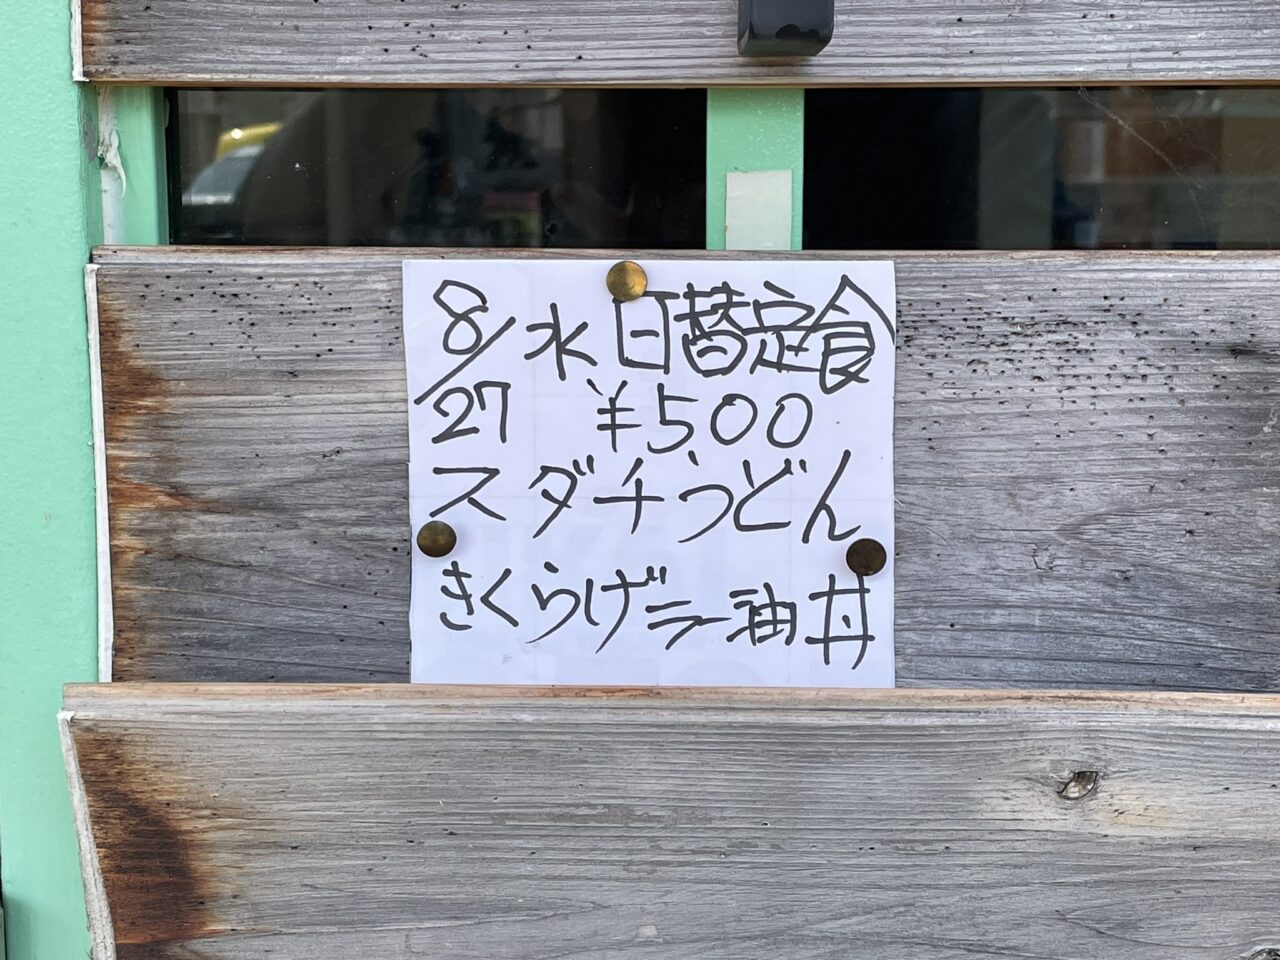 8/27 水 日替定食
¥500
スダチうどん
きくらげラー油丼